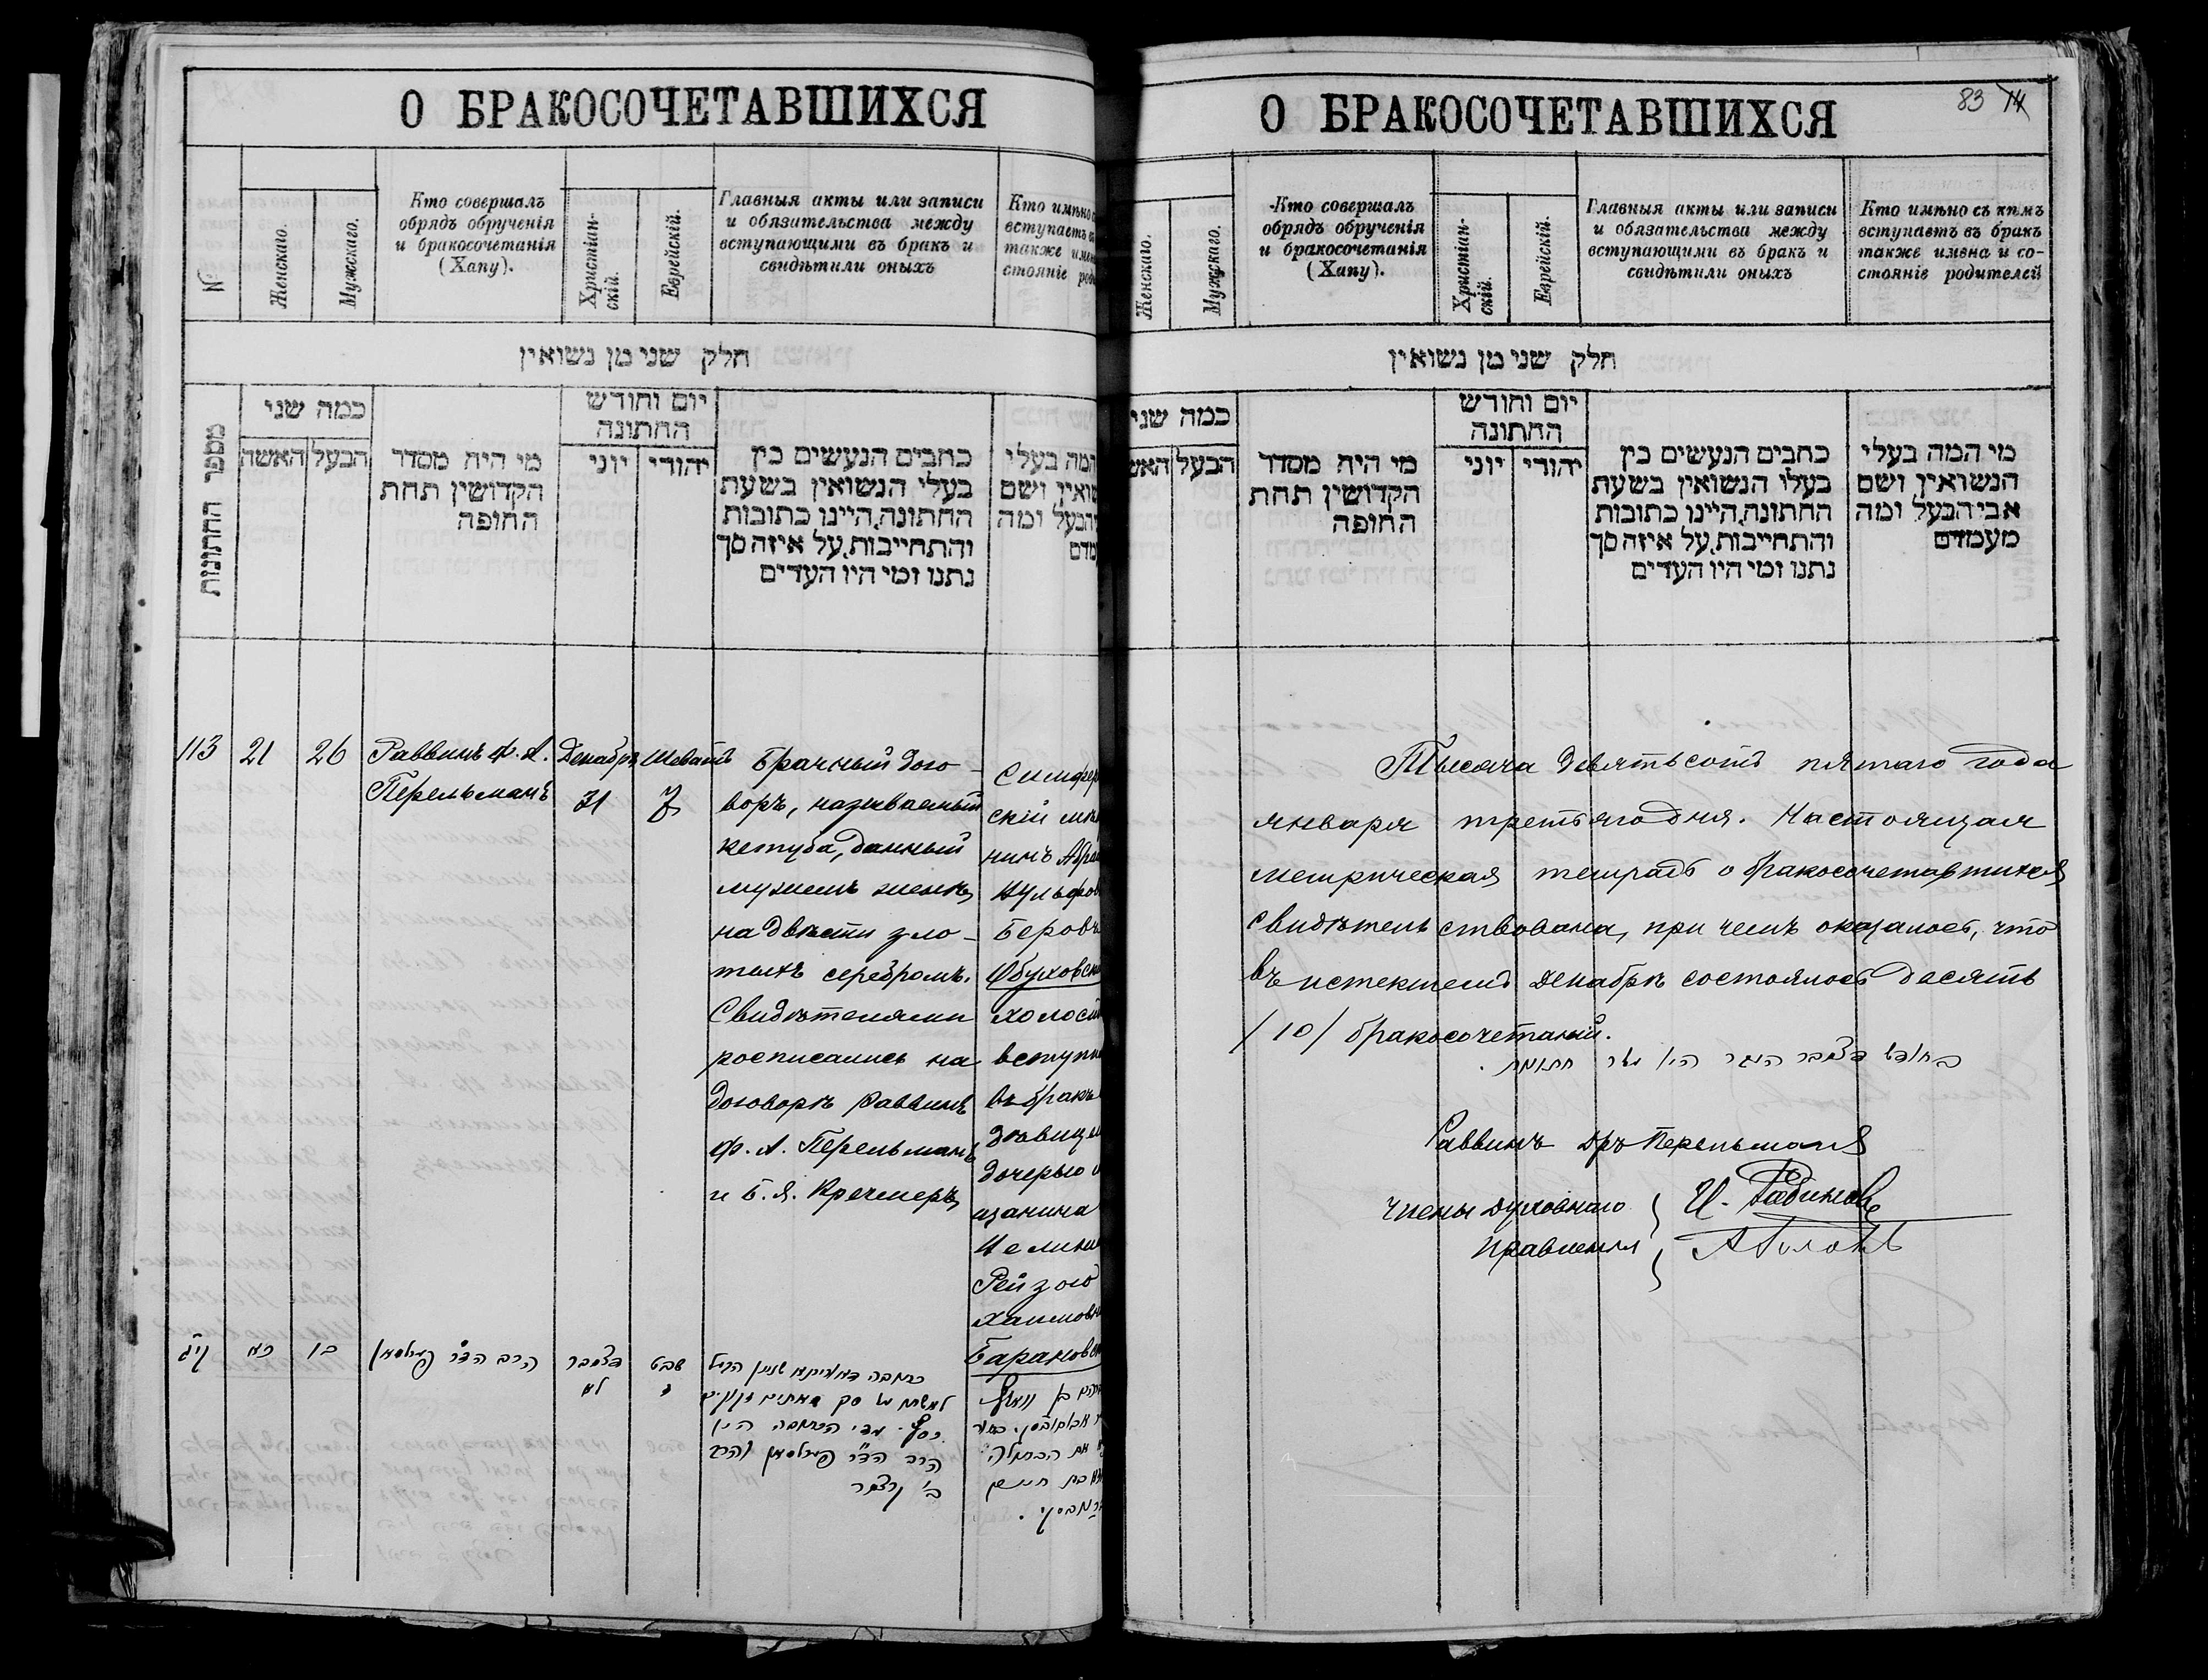 О БРАКОСОЧЕТАВШИХСЯ
№
Женскаго.
Мужскаго.
Кто совершалъ
обрядъ обрученія
и бракосочетанія
(Хапу).
Христіан-
скій.
Еврейскій.
Главныя акты или записи
и обязательства между
вступающими въ бракъ и
свидѣтили оныхъ
Кто имѣно с
вступаетъ в
также имен
стояніе род
חלק שני מן נשואין
מספר החתונות
כמה שני
האשה
הבעל
מי היה מסדר
הקדושין תחת
החופה
יום וחודש
החתונה
יוני
יהודי
כתבים הנעשים בין
בעלי הנשואין בשעת
החתונה, היינו כתובות
והתחייבות, על איזה סך
נתנו ומי היו העדים
המה בעלי
שואין ושם
הבעל ומה
מדם
113
21
26
Раввинъ Ф. А.
Перельманъ
Декабрь
31
Шеватъ
7
Брачный дого-
воръ, называемый
кетуба, данный
мужемъ женѣ,
на двѣсти зло-
тыхъ серебромъ.
Свидѣтелями
росписались на
договорѣ раввинъ
Ф. А. Перельманъ
и Б. Я. Кречмеръ
Симфер
скій мѣ
нинъ Абра
Вульфов
Беровъ
Обуховск
холост
вступи
въ бракъ
дѣвице
дочерью
щанина
Рейзою
Хаимовн
Барановск
קיג
כא
כו
הרב הד״ר פערלמאן
דצמבר
לא
שבט
ז
כתובה
לאשתו על סך מאתים זקוקים
כסף. עדי הכתובה היו
הרב הד״ר פערלמאן והרב
ב״י קרצמר
О БРАКОСОЧЕТАВШИХСЯ
83 14
Женскаго.
Мужскаго.
Кто совершалъ
обрядъ обрученія
и бракосочетанія
(Хапу).
Христіан-
скій.
Еврейскій.
Главныя акты или записи
и обязательства между
вступающими въ бракъ и
свидѣтили оныхъ
Кто имѣно съ кѣмъ
вступаетъ въ бракъ
также имена и со-
стояніе родителей
חלק שני מן נשואין
כמה שני
האש
הבעל
מי היה מסדר
הקדושין תחת
החופה
יום וחודש
החתונה
יוני
יהודי
כתבים הנעשים בין
בעלי הנשואין בשעת
החתונה, היינו כתובות
והתחייבות, על איזה סך
נתנו ומי היו העדים
מי המה בעלי
הנשואין ושם
אבי הבעל ומה
מעמדם
Тысяча девятьсотъ пятаго года
января третьяго дня. Настоящая
метрическая тетрадь о бракосочетавшихся
свидѣтельствована, при чемъ оказалось, что
въ истекшемъ Декабрѣ состоялось десять
/10/ бракосочетаній.
בחודש דצמבר העבר היו עשר חתונות.
Раввинъ Др Перельманъ
Члены духовнаго
правленія